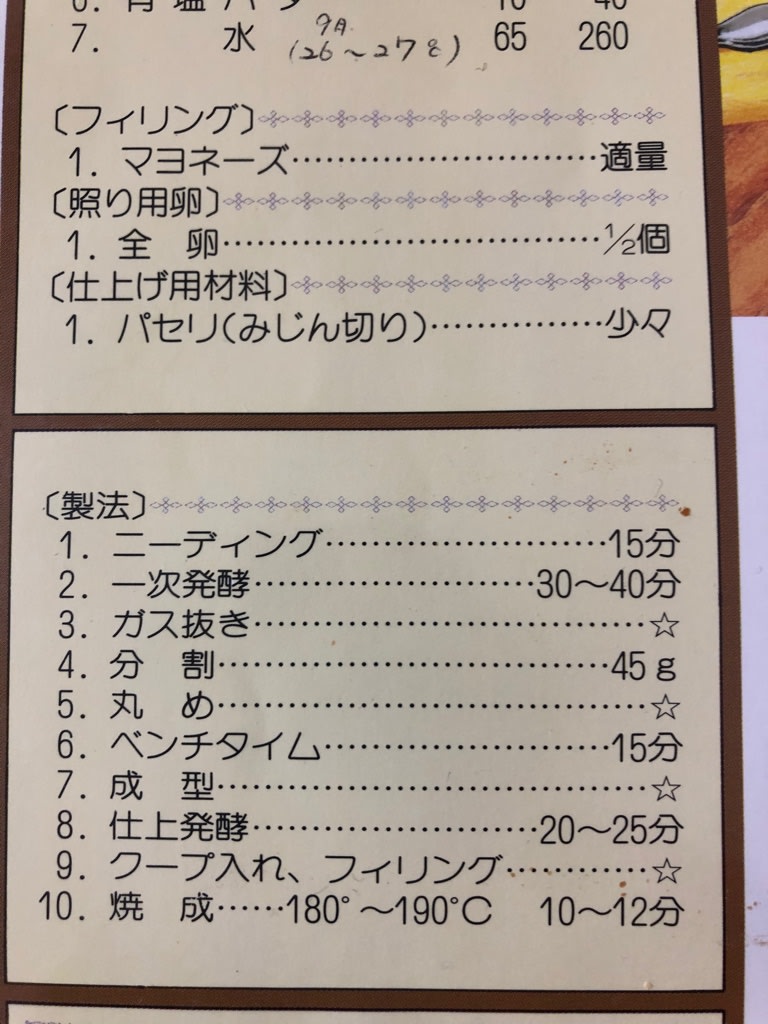 7. 水 (26～27℃) 65 260
9月
〔フィリング〕
1. マヨネーズ…………………………適量
〔照り用卵〕
1. 全 卵………………………………1/2個
〔仕上げ用材料〕
1. パセリ(みじん切り)……………少々
〔製法〕
1. ニーディング………………………15分
2. 一次発酵………………………30～40分
3. ガス抜き………………………………☆
4. 分 割………………………………45g
5. 丸 め…………………………………☆
6. ベンチタイム………………………15分
7. 成 型…………………………………☆
8. 仕上発酵………………………20～25分
9. クープ入れ、フィリング…………☆
10. 焼 成……180°～190℃ 10～12分